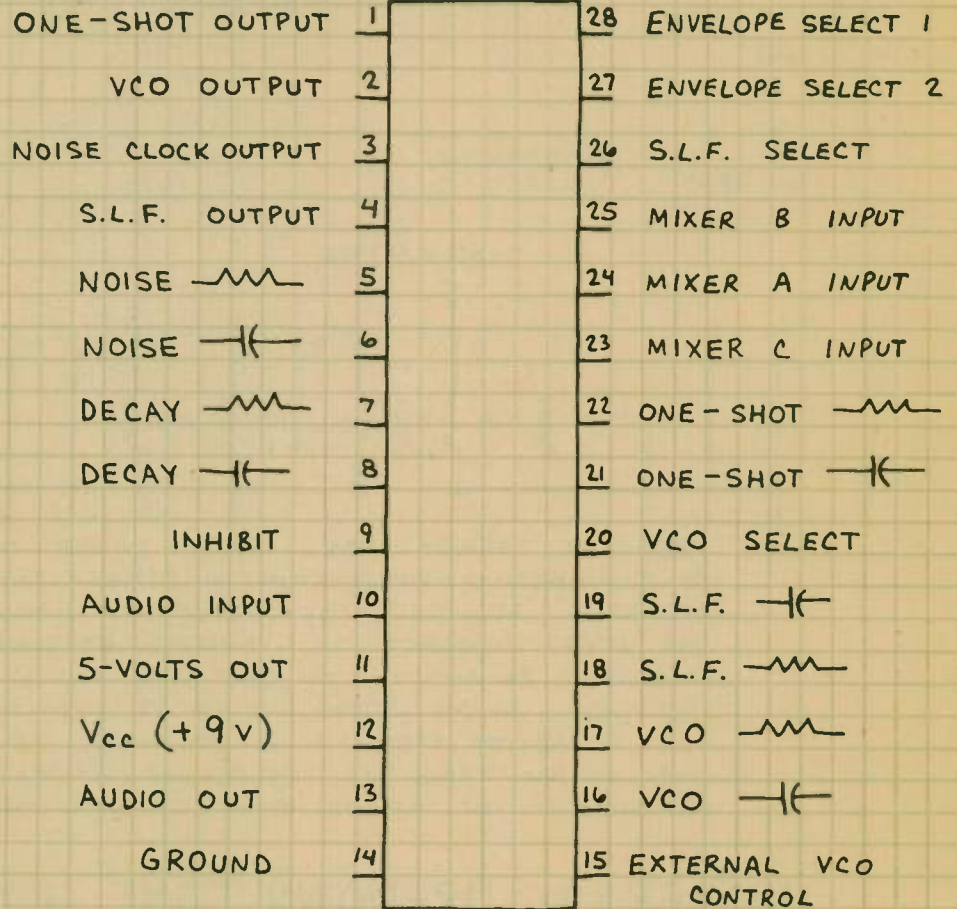 ONE-SHOT OUTPUT 1
VCO OUTPUT 2
NOISE CLOCK OUTPUT 3
S.L.F. OUTPUT 4
NOISE 5
NOISE 6
DECAY 7
DECAY 8
INHIBIT 9
AUDIO INPUT 10
5-VOLTS OUT 11
Vcc (+9v) 12
AUDIO OUT 13
GROUND 14
28 ENVELOPE SELECT 1
27 ENVELOPE SELECT 2
26 S.L.F. SELECT
25 MIXER B INPUT
24 MIXER A INPUT
23 MIXER C INPUT
22 ONE-SHOT
21 ONE-SHOT
20 VCO SELECT
19 S.L.F.
18 S.L.F.
17 VCO
16 VCO
15 EXTERNAL VCO
CONTROL